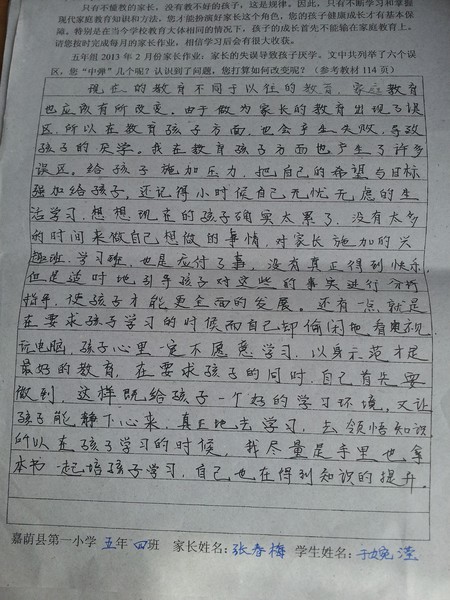 只有不懂教的家长，没有教不好的孩子，这是规律。因此，只有不断学习和掌握
现代家庭教育知识和方法，您才能扮演好家长这个角色，您的孩子健康成长才有基本保
障。特别是在当今学校教育大体相同的情况下，孩子的成长首先不能输在家庭教育上。
请您按时完成每月的家长作业，相信学习后会有很大收获。
五年级 2013 年 2 月份家长作业：家长的失误导致孩子厌学。文中共列举了六个误
区，您“中弹”几个呢？认识到了问题，您打算如何改变呢？（参考教材 114 页）
现在的教育不同于以往的教育，家庭教育
也应该有所改变。由于做为家长的教育出现了误
区，所以在教育孩子方面，也会产生失败，导致
孩子的厌学。我在教育孩子方面也产生了许多
误区。给孩子施加压力，把自己的希望与目标
强加给孩子，还记得小时候自己无忧无虑的生
活学习，想想现在的孩子确实太累了，没有太多
的时间来做自己想做的事情，对家长施加的兴
趣班，学习班，也是应付了事，没有真正得到快乐，
但是适时地引导孩子对这些的事实进行分析
指导，使孩子才能更全面的发展。还有一点就是
在要求孩子学习的时候而自己却偷闲地看电视
玩电脑，孩子心里一定不愿意学习，以身示范才是
最好的教育，在要求孩子的同时，自己首先要
做到，这样既给孩子一个好的学习环境，又让
孩子能静下心来，真正地去学习，去领悟知识
所以在孩子学习的时候，我尽量是手里也拿
本书一起陪孩子学习，自己也在得到知识的提升。
嘉荫县第一小学 五年 四班 家长姓名：张春梅 学生姓名：于婉滢